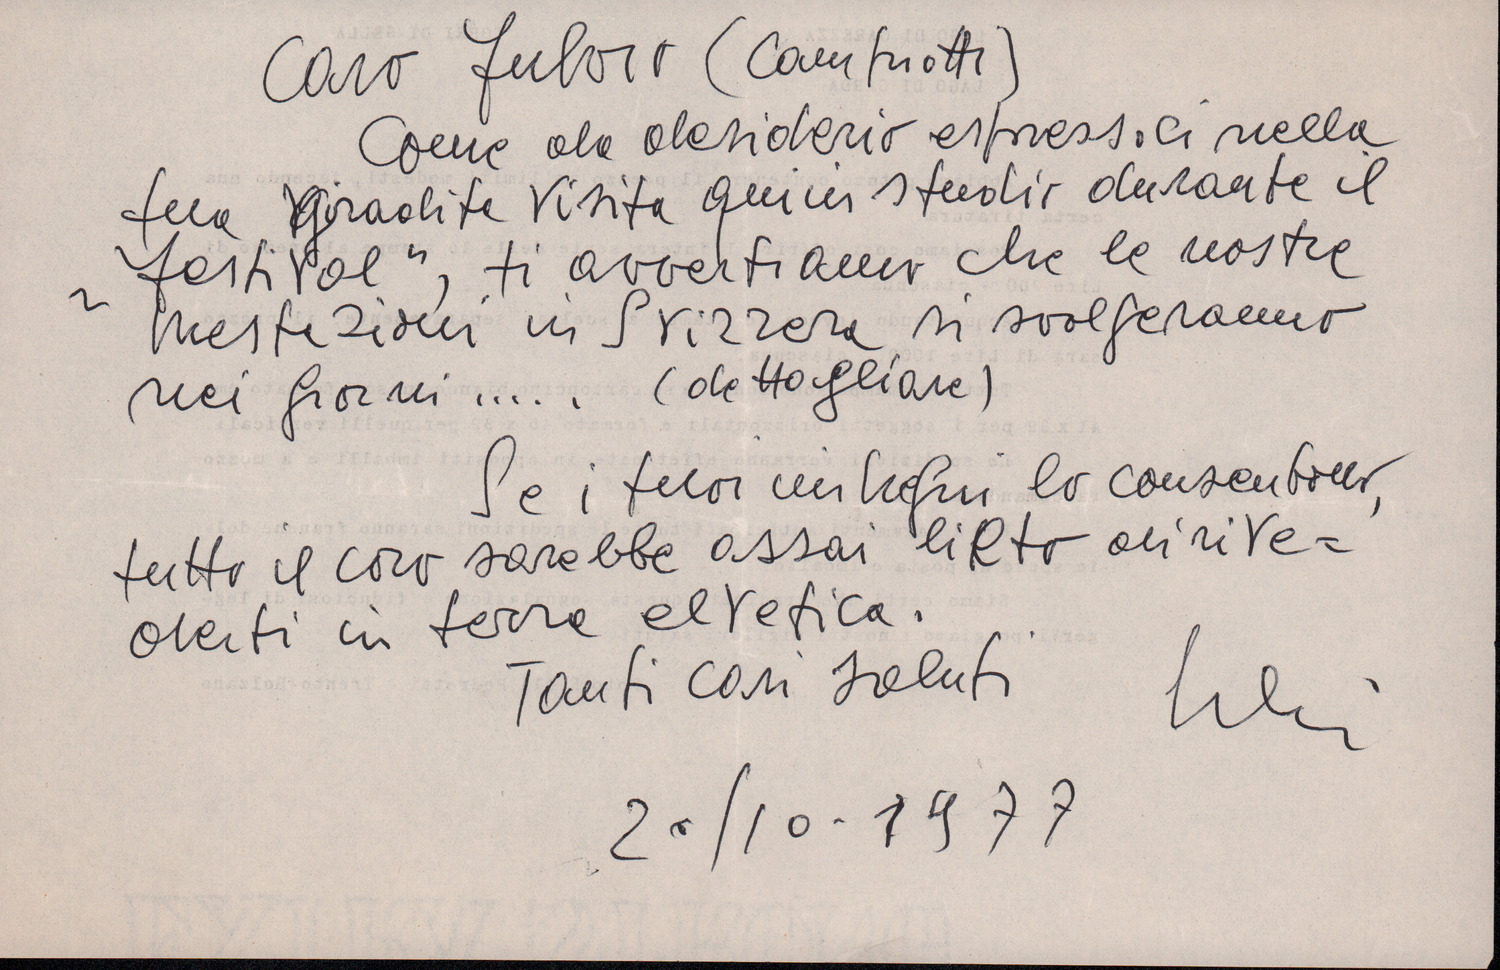 Caro Fulvio (Campiotti)
Come da desiderio espressoci nella
tua gradita visita qui in studio durante il
"festival", ti avvertiamo che le nostre
prestazioni in Svizzera si svolgeranno
nei giorni ..... (dettagliare)
Se i tuoi impegni lo consentono,
tutto il coro sarebbe assai lieto di rive=
derti in terra elvetica.
Tanti cari saluti
20/10-1977